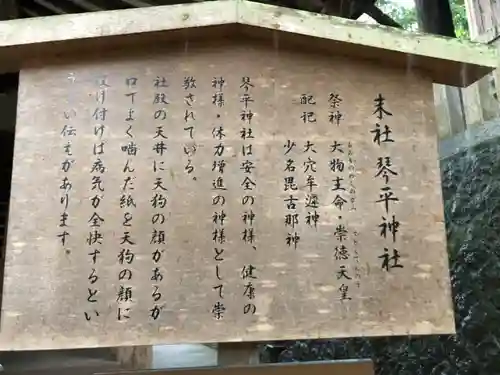 末社 琴平神社
祭神 大物主命・崇徳天皇
配祀 大穴牟遅神
少名毘古那神
琴平神社は安全の神様、健康の
神様・体力増進の神様として崇
敬されている。
社殿の天井に天狗の顔があるが
口でよく噛んだ紙を天狗の顔に
投げ付けは病気が全快するとい
う言い伝えがあります。